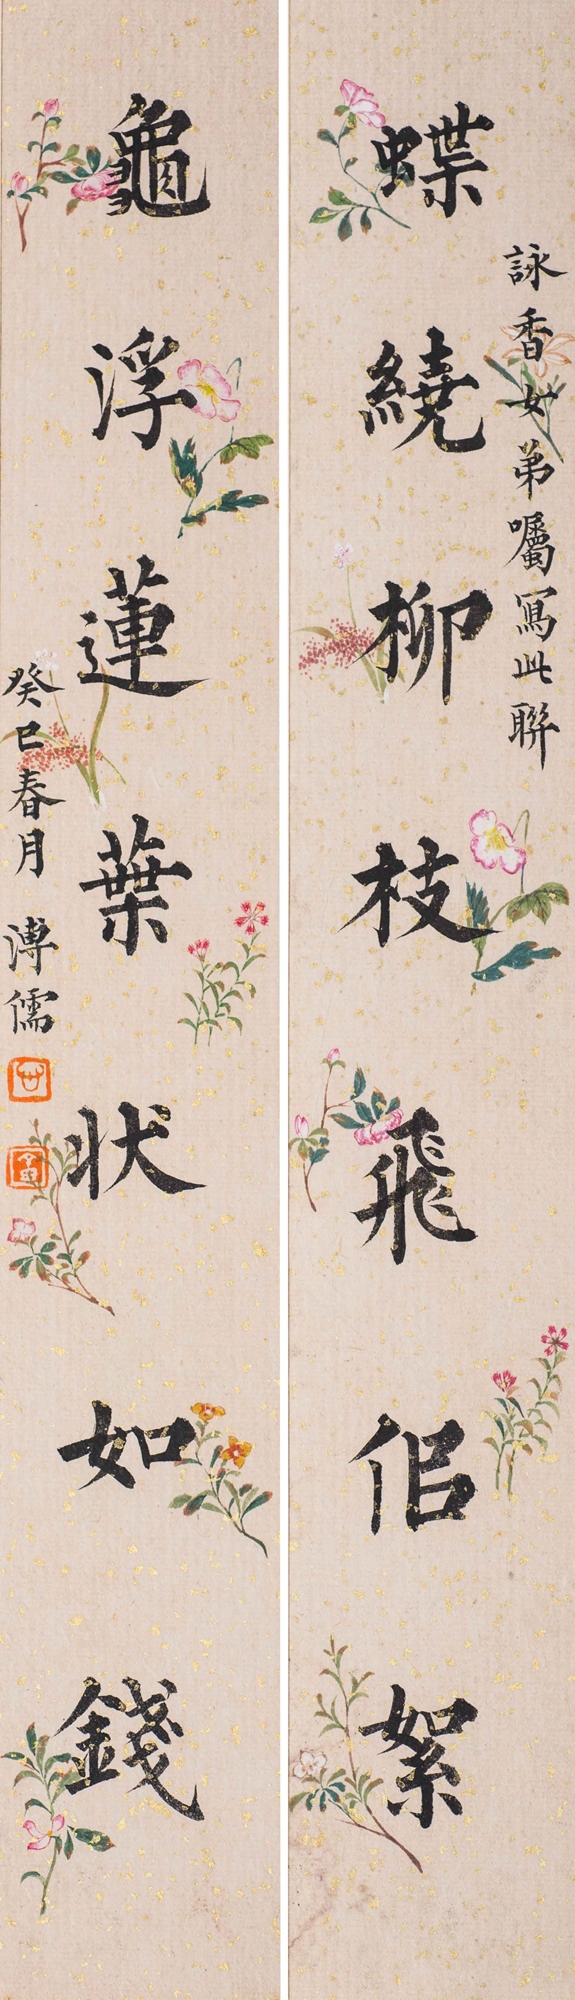 詠香女弟囑冩此聯
蝶繞柳枝飛佀絮
龜浮蓮葉状如錢
癸巳春月 溥儒